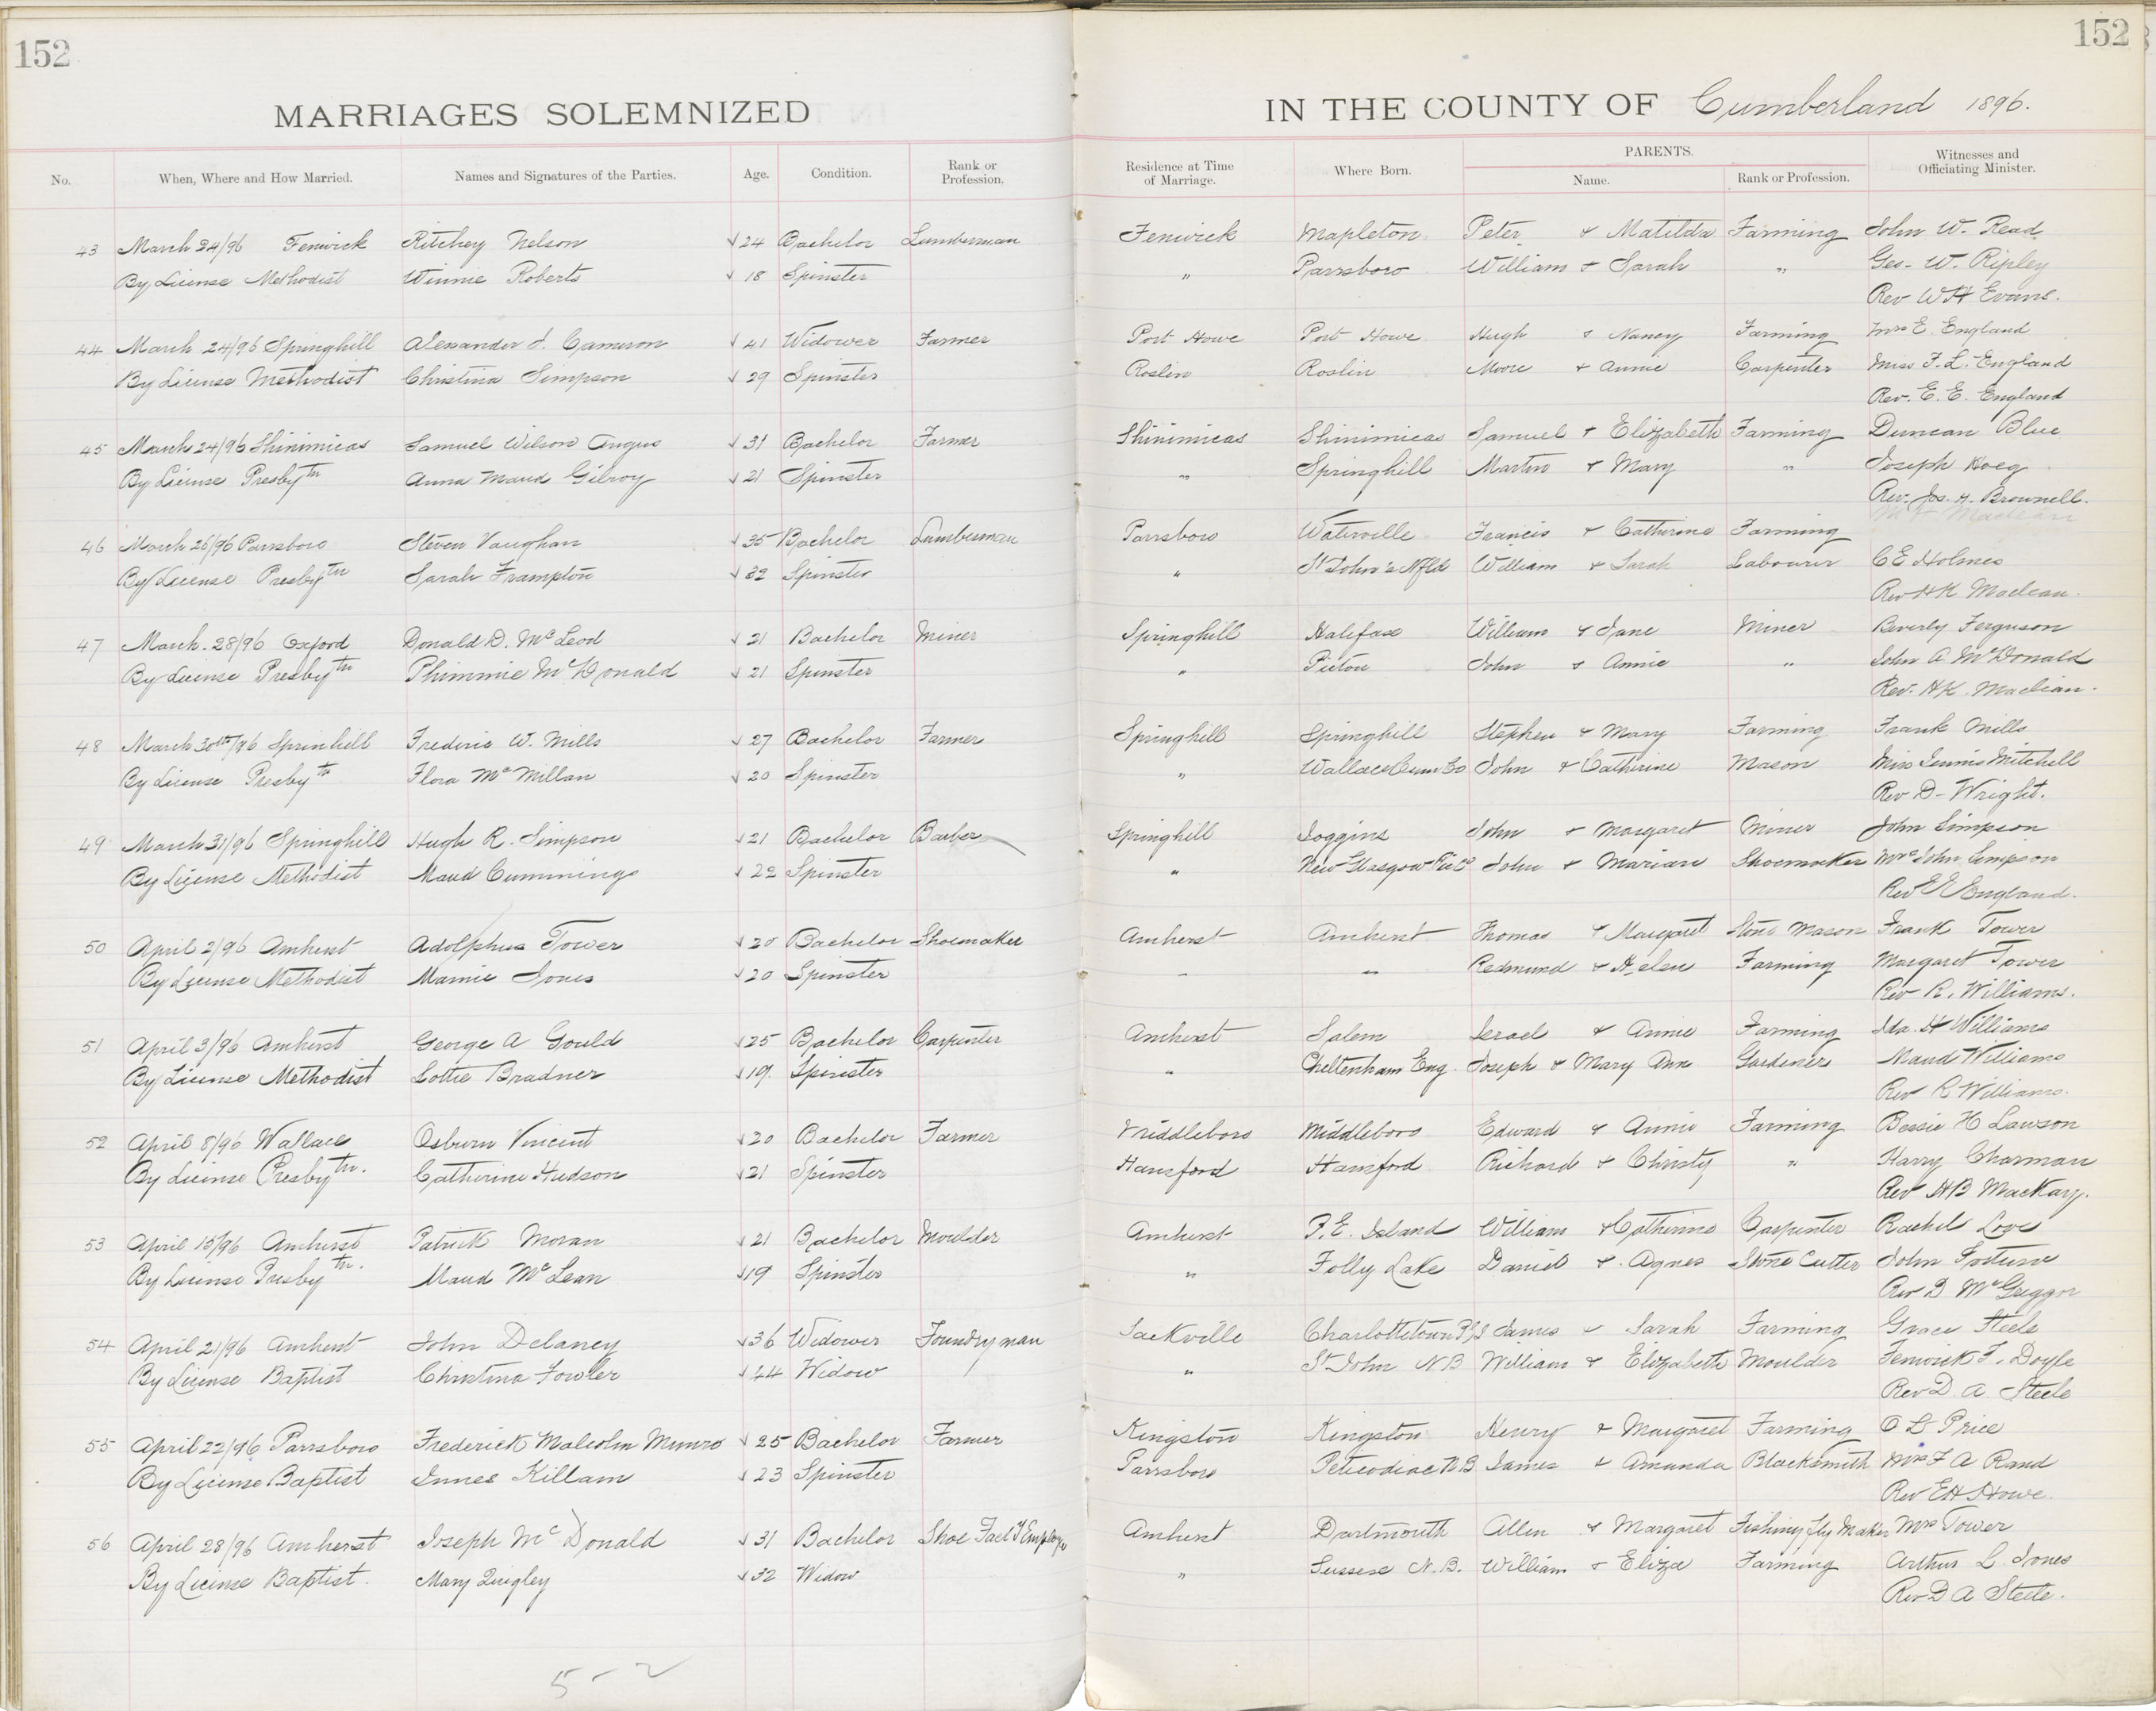 152
152
MARRIAGES SOLEMNIZED
IN THE COUNTY OF Cumberland 1896.
No. When, Where and How Married. Names and Signatures of the Parties. Age. Condition. Rank or Profession. Residence at Time of Marriage. Where Born. PARENTS. Name. Rank or Profession. Witnesses and Officiating Minister.
43 March 24/96 Fenwick Ritchey Nelson √ 24 Bachelor Lumberman Fenwick Mapleton Peter & Matilda Farming John W. Read
By License Methodist Winnie Roberts √ 18 Spinster " Parrsboro William & Sarah " Geo. W. Ripley
Rev W H Evans.
44 March 24/96 Springhill Alexander J. Cameron √ 41 Widower Farmer Port Howe Port Howe Hugh & Nancy Farming Mrs E. England
By License Methodist Christina Simpson √ 29 Spinster Roslin Roslin Moore & Annie Carpenter Miss F. L. England
Rev. E. E. England
45 March 24/96 Shinimicas Samuel Wilson Angus √ 31 Bachelor Farmer Shinimicas Shinimicas Samuel & Elizabeth Farming Duncan Blue
By License Presbytn Anna Maud Gilroy √ 21 Spinster " Springhill Martin & Mary " Joseph Hoeg
Rev. Jos. H. Brownell.
46 March 26/96 Parrsboro Steven Vaughan √ 35 Bachelor Lumberman Parrsboro Waterville Francis & Catherine Farming
By License Presbytn Sarah Frampton √ 32 Spinster " St John's Nfld William & Sarah Labourer C E Holmes
Rev H K Maclean.
47 March. 28/96 Oxford Donald D. McLeod √ 21 Bachelor Miner Springhill Halifax William & Jane Miner Beverly Ferguson
By License Presbytn Phimmie McDonald √ 21 Spinster " Pictou John & Annie " John A McDonald
Rev. H K. Maclean.
48 March 30th/96 Sprinhill Frederic W. Mills √ 27 Bachelor Farmer Springhill Springhill Stephen & Mary Farming Frank Mills
By License Presbytn Flora McMillan √ 20 Spinster " Wallace Cum Co John & Catherine Mason Miss Mitchell
Rev D. Wright.
49 March 31/96 Springhill Hugh R. Simpson √ 21 Bachelor Barber Springhill Joggins John & Margaret Miner John Simpson
By License Methodist Maud Cummings √ 22 Spinster " New Glasgow John & Marian Shoemaker Mrs John Simpson
Rev E E England.
50 April 2/96 Amherst Adolphus Tower √ 20 Bachelor Shoemaker Amherst Amherst Thomas & Margaret Stone Mason Frank Tower
By License Methodist Mamie Jones √ 20 Spinster " " Redmund & Helen Farming Margaret Tower
Rev R. Williams.
51 April 3/96 Amherst George A Gould √ 25 Bachelor Carpenter Amherst Salem Israel & Annie Farming Ida. H Williams
By License Methodist Lottie Bradner √ 19. Spinster " Cheltenham Eng. Joseph & Mary Ann Gardener Maud Williams
Rev R Williams.
52 April 8/96 Wallace Osburn Vincent √ 20 Bachelor Farmer Middleboro Middleboro Edward & Annie Farming Bessie H Lawson
By License Presbytn. Catherine Hudson √ 21 Spinster Hansford Hansford Richard & Christy " Harry Charman
Rev H B MacKay.
53 April 15/96 Amherst Patrick Moran √ 21 Bachelor Moulder Amherst P. E. Island William & Catherine Carpenter Rachel Love
By License Presbytn. Maud McLean √ 19 Spinster " Folly Lake Daniel & Agnes Stone Cutter John Fortune
Rev D McGreggor
54 April 21/96 Amherst John Delaney √ 36 Widower Foundryman Sackville Charlottetown P.E.I James & Sarah Farming Grace Steele
By License Baptist Christina Fowler √ 44 Widow " St John N B William & Elizabeth Moulder Fenwick F. Doyle
Rev D. A. Steele
55 April 22/96 Parrsboro Frederick Malcolm Munro √ 25 Bachelor Farmer Kingston Kingston Henry & Margaret Farming O L Price
By License Baptist Innes Killam √ 23 Spinster Parrsboro Peticodiac N.B James & Amanda Blacksmith Mrs F A Rand
Rev E H Howe.
56 April 28/96 Amherst Joseph McDonald √ 31 Bachelor Shoe Facty Employe Amherst Dartmouth Allen & Margaret Fishing fly Maker Mrs Tower
By License Baptist. Mary Quigley √ 32 Widow " Sussex N.B. William & Eliza Farming Arthur L. Jones
Rev D A Steele.
5 - 2